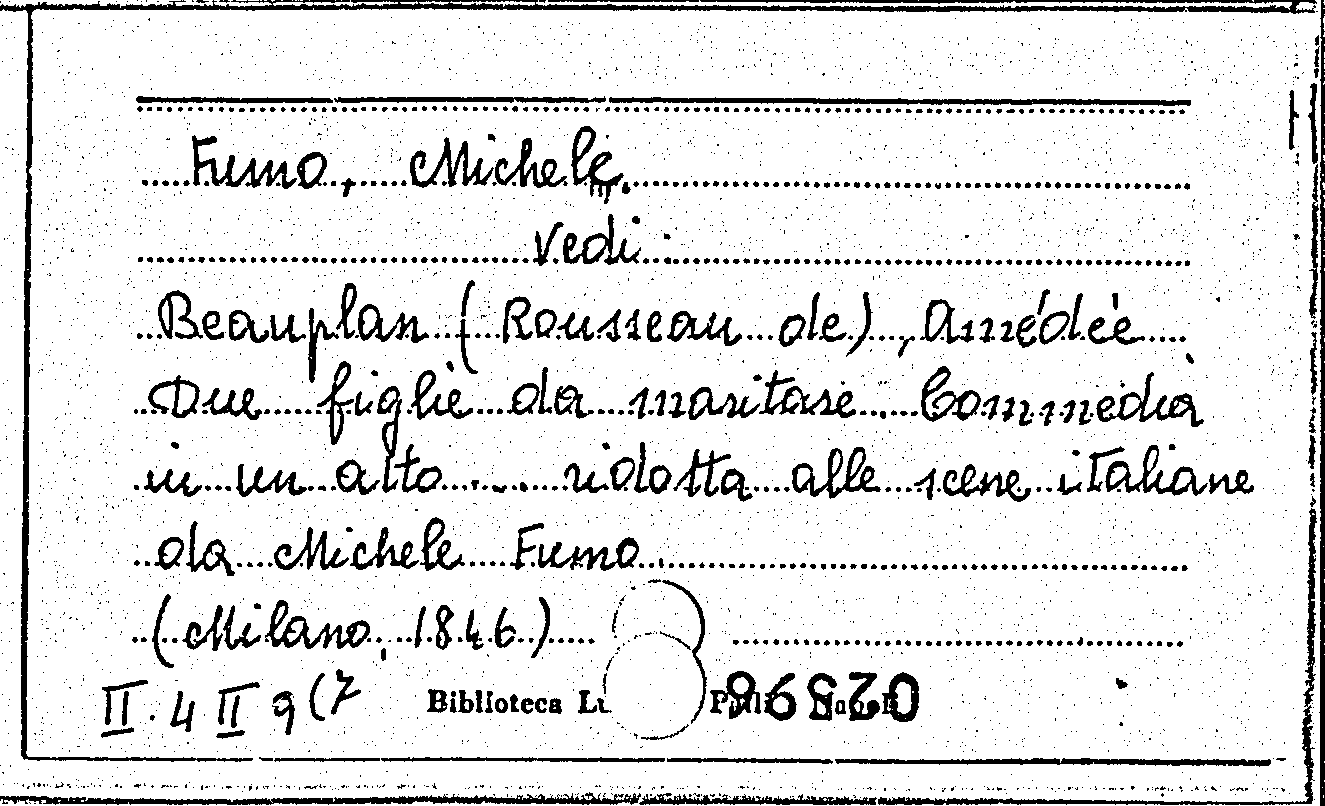 Fumo, Michele.
Vedi:
Beauplan (Rousseau de), Amédée
Due figlie da maritare. Commedia
in un atto ... ridotta alle scene italiane
da Michele Fumo.
(Milano, 1846)
II. 4 II 9 (7
Biblioteca